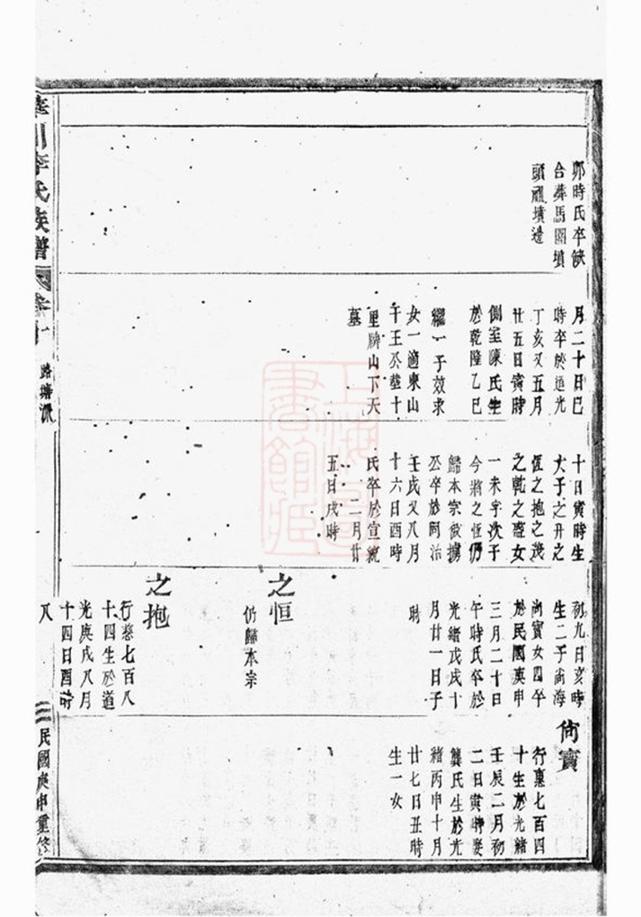 卯時氏卒缺
合葬馬園墳
頭祖墳邊
月二十日巳
時卒於道光
丁亥又五月
廿五日寅時
側室陳氏生
於乾隆乙巳
繼一子效求
女一適東山
下王公葬十
里牌山下天
墓
十日寅時生
六子之升之
恆之抱之茂
之乾之盛女
一未字次子
今將之恆仍
歸本宗效據
公卒於同治
壬戌又八月
十六日酉時
氏卒於宣統
二月廿
五日戌時
初九日亥時
生二子尚海
尚寶女四卒
於民國庚申
三月二十日
午時氏卒於
光緒戊戌十
月廿一日子
時
之恒
仍歸本宗
之抱
行慈七百八
十四生於道
光庚戌八月
十四日酉時
尚寶
行惠七百四
十生於光緒
壬辰二月初
二日寅時娶
龔氏生於光
緒丙申十月
廿七日丑時
生一女
川李氏族譜
卷十
路塘派
八
民國庚申重修
上海圖書館藏